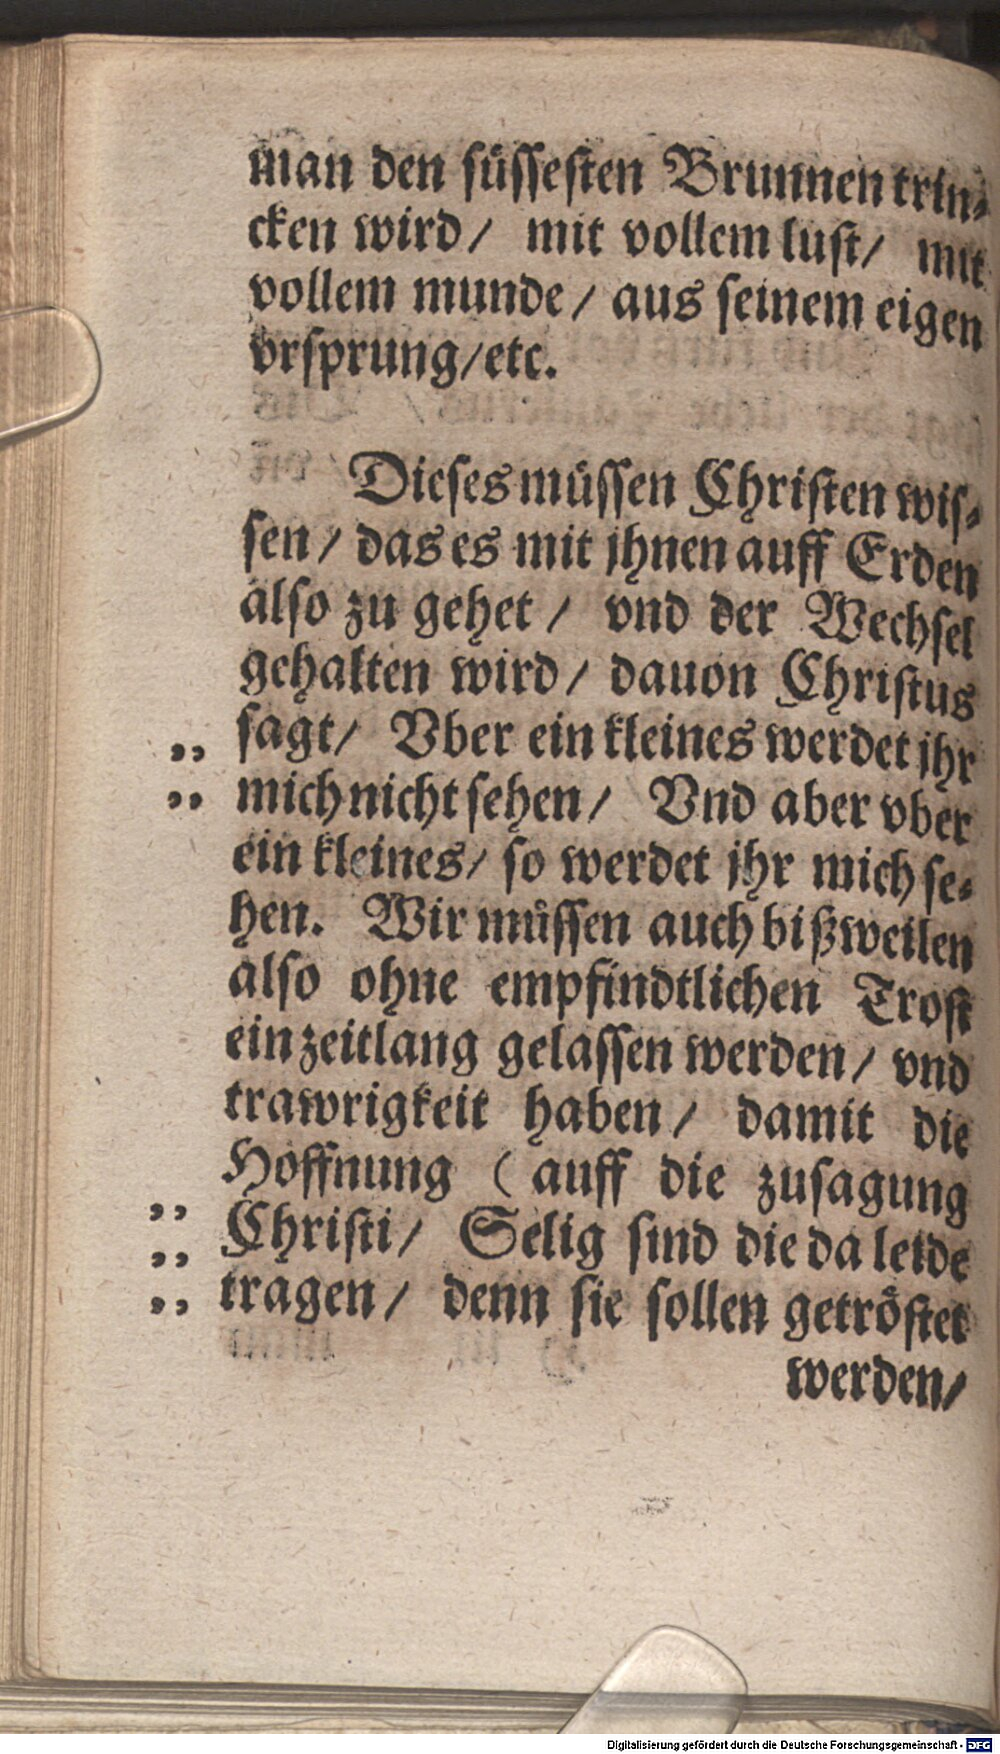 man den süssesten Brunnen trin-
cken wird / mit vollem lust / mit
vollem munde / aus seinem eigen
vrsprung / etc.
Dieses müssen Christen wis-
sen / das es mit jhnen auff Erden
also zu gehet / vnd der Wechsel
gehalten wird / dauon Christus
„ sagt / Vber ein kleines werdet jhr
„ mich nicht sehen / Vnd aber vber
ein kleines / so werdet jhr mich se-
hen. Wir müssen auch bißweilen
also ohne empfindtlichen Trost
ein zeitlang gelassen werden / vnd
trawrigkeit haben / damit die
Hoffnung ( auff die zusagung
„ Christi / Selig sind die da leide
„ tragen / denn sie sollen getröstet
werden /
Digitalisierung gefördert durch die Deutsche Forschungsgemeinschaft - DFG